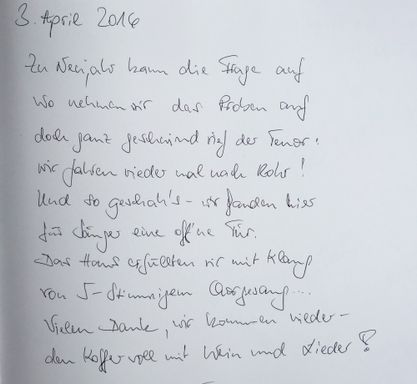 3. April 2016
Zu Neujahr kam die Frage auf
wo nehmen wir das Proben auf
doch ganz geschwind rief der Tenor:
wir fahren wieder mal nach Rohr!
Und so geschah's - wir fanden hier
für Sänger eine off'ne Tür.
Das Haus erfüllten wir mit Klang
von 5-Stimmigem Chorgesang...
Vielen Dank, wir kommen wieder -
den Koffer voll mit Wein und Lieder!